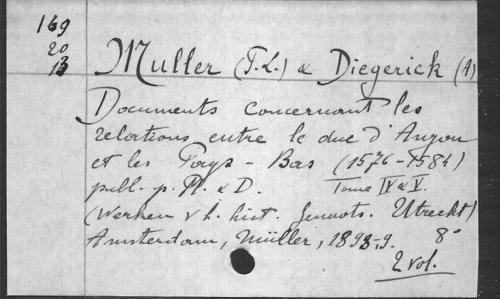 169
20
13
Muller (F.L.) & Diegerick (A)
Documents concernant les
relations entre le duc d'Anjou
et les Pays-Bas (1576-1584)
publ. p. M. & D. Tome IV & V.
(Werken v. h. hist. Genoots. Utrecht)
Amsterdam, Müller, 1898-9. 8°
2 vol.